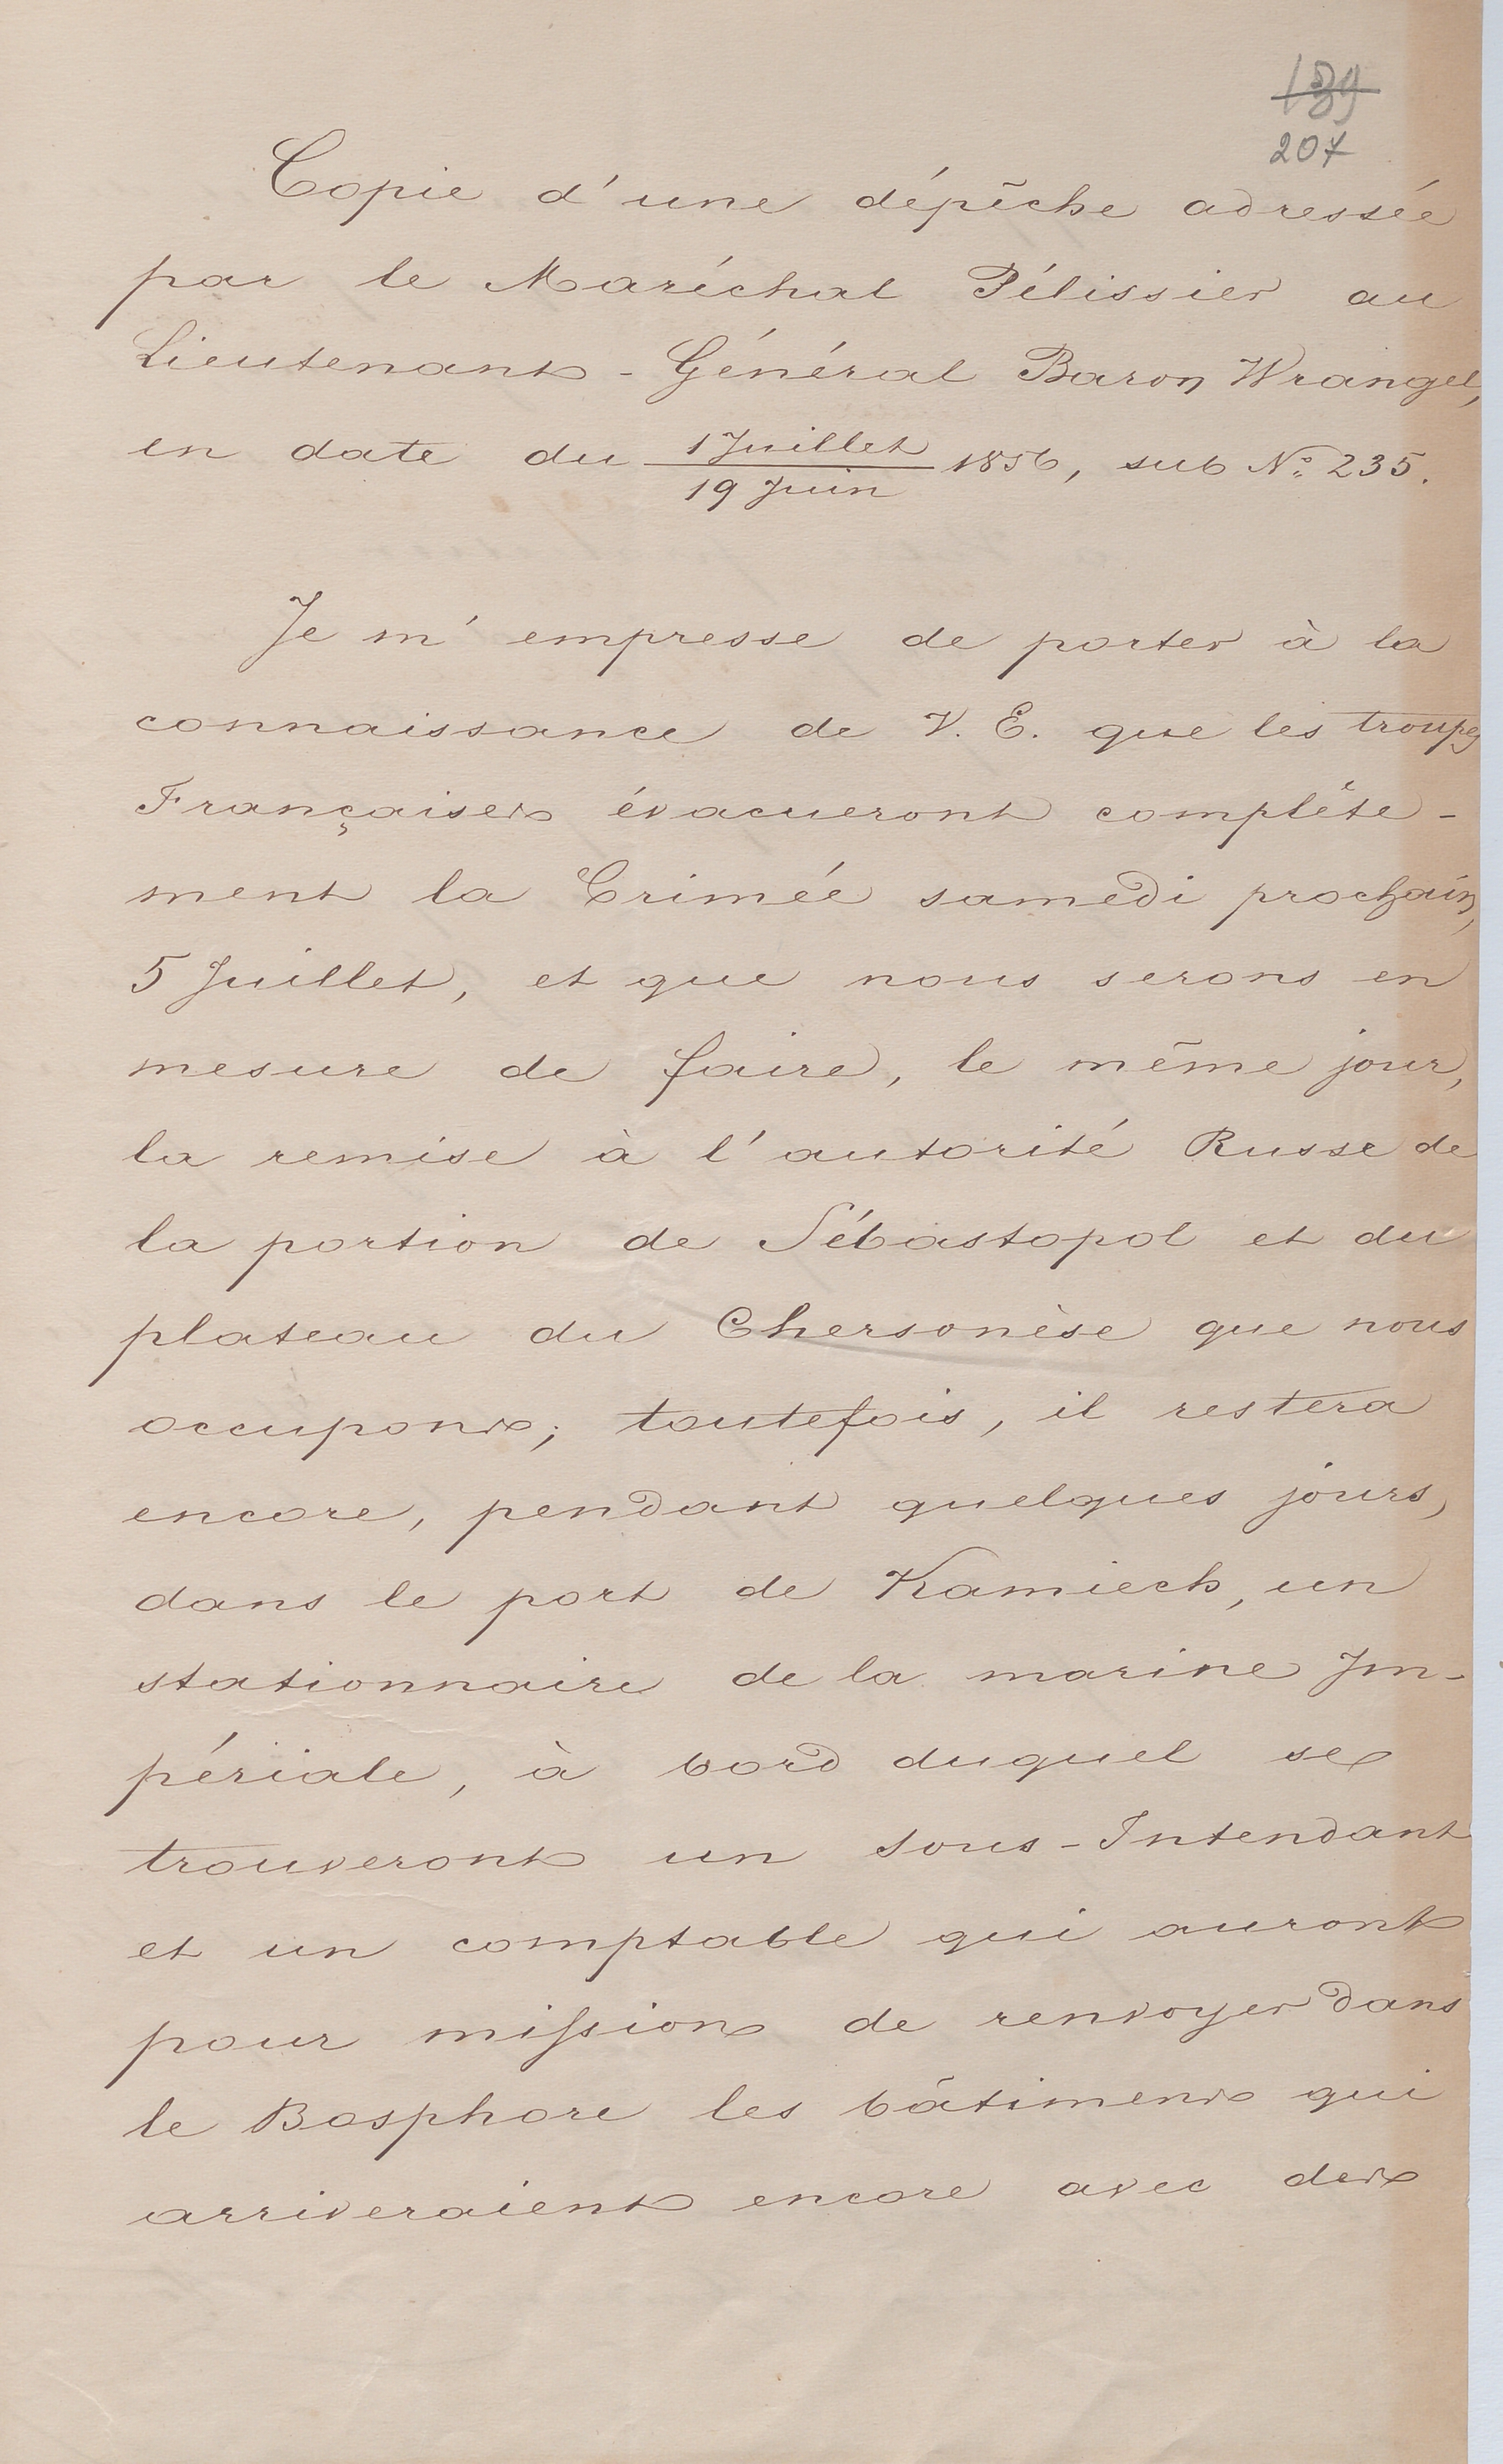 139
207
Copie d'une dépêche adressée
par le Maréchal Pélissier au
Lieutenant-Général Baron Wrangel,
en date du 1 Juillet / 19 Juin 1856, sub № 235.
Je m'empresse de porter à la
connaissance de V. E. que les troupes
Françaises évacueront complète-
ment la Crimée samedi prochain,
5 Juillet, et que nous serons en
mesure de faire, le même jour,
la remise à l'autorité Russe de
la portion de Sébastopol et du
plateau du Chersonèse que nous
occupons; toutefois, il restera
encore, pendant quelques jours,
dans le port de Kamiech, un
stationnaire de la marine Im-
périale, à bord duquel se
trouveront un sous-Intendant
et un comptable qui auront
pour mission de renvoyer dans
le Bosphore les bâtiments qui
arriveraient encore avec des